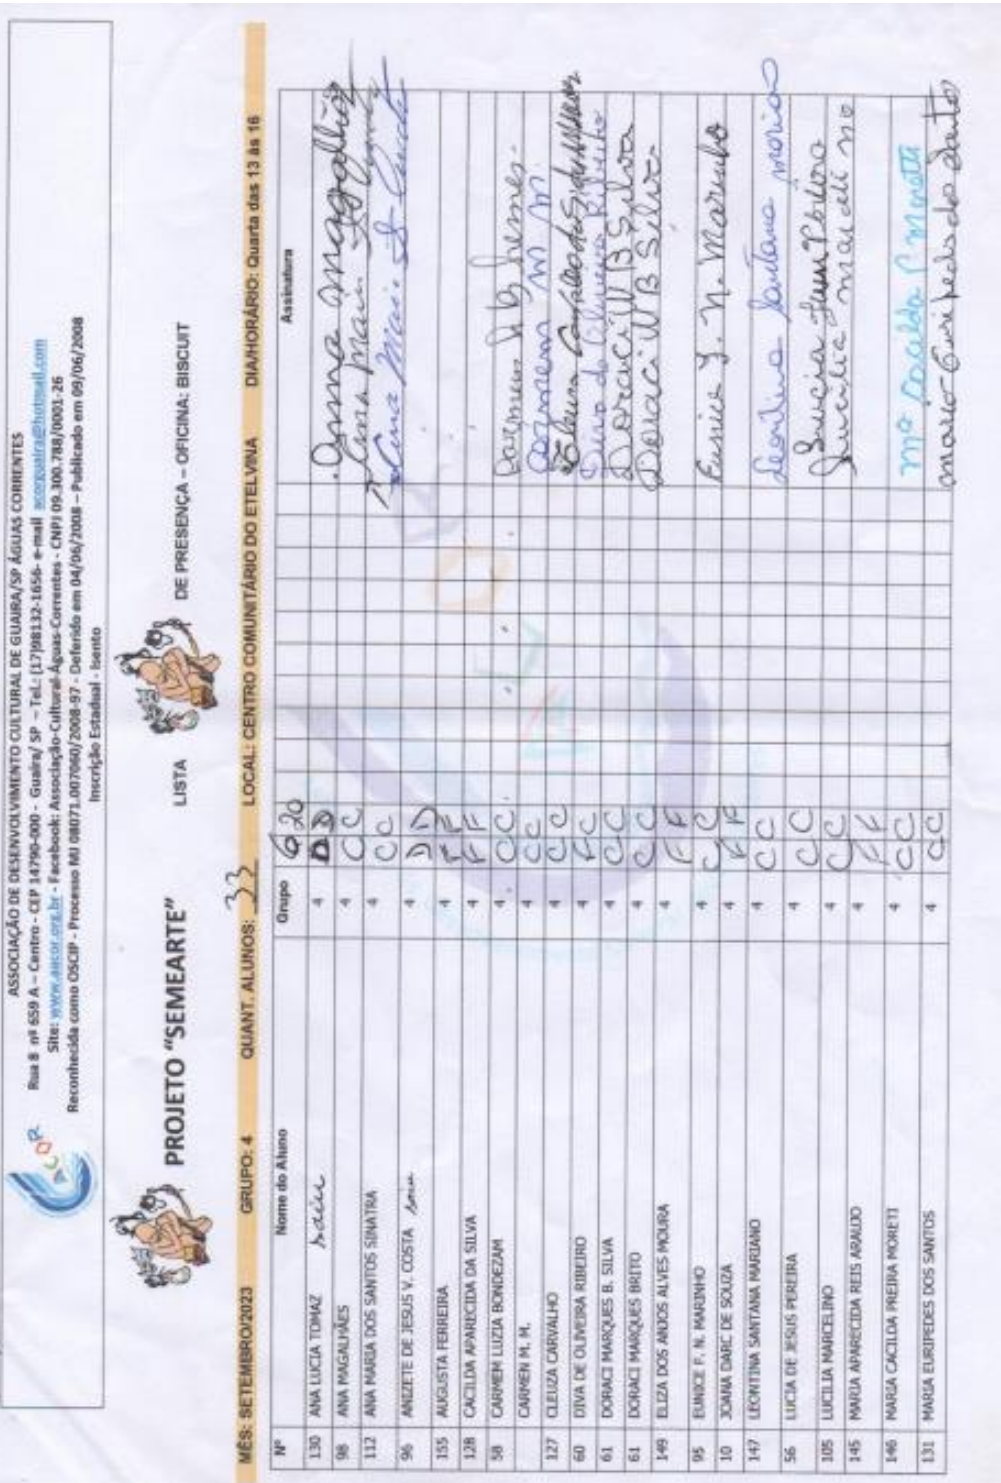 ASSOCIAÇÃO DE DESENVOLVIMENTO CULTURAL DE GUAIRA/SP ÁGUAS CORRENTES
Rua 8 nº 659 A – Centro - CEP 14790-000 - Guaira/ SP – Tel.: (17)98132-1656- e-mail acorguaira@hotmail.com
Site: www.aucor.org.br - Facebook: Associação-Cultural-Águas-Correntes - CNPJ 09.300.788/0001-26
Reconhecida como OSCIP - Processo MJ 08071.007060/2008-97 - Deferido em 04/06/2008 – Publicado em 09/06/2008
Inscrição Estadual - Isento
ACOR
PROJETO "SEMEARTE" LISTA DE PRESENÇA – OFICINA: BISCUIT
MÊS: SETEMBRO/2023 GRUPO: 4 QUANT. ALUNOS: 33 LOCAL: CENTRO COMUNITÁRIO DO ETELVINA DIA/HORÁRIO: Quarta das 13 às 16
Nº Nome do Aluno Grupo 6 20 Assinatura
130 ANA LUCIA TOMAZ saiu 4 D D
98 ANA MAGALHÃES 4 C C Anna Magalhães
112 ANA MARIA DOS SANTOS SINATRA 4 C C Ana Maria
96 ANIZETE DE JESUS V. COSTA saiu 4 D D
155 AUGUSTA FERREIRA 4 F F
128 CACILDA APARECIDA DA SILVA 4 F F
58 CARMEM LUZIA BONDEZAM 4 C C
CARMEN M. M. 4 C C Carmem M M
127 CLEUZA CARVALHO 4 C C
60 DIVA DE OLIVEIRA RIBEIRO 4 F C Diva de Oliveira Ribeiro
61 DORACI MARQUES B. SILVA 4 C C Doraci M B Silva
61 DORACI MARQUES BRITO 4 C C Doraci M B Silva
149 ELIZA DOS ANJOS ALVES MOURA 4 F F
95 EUNICE F. N. MARINHO 4 C C Eunice F. N. Marinho
10 JOANA DARC DE SOUZA 4 F F
147 LEONTINA SANTANA MARIANO 4 C C Leontina Santana mariano
56 LUCIA DE JESUS PEREIRA 4 C C Lucia
105 LUCILIA MARCELINO 4 C C Lucilia marcelino
145 MARIA APARECIDA REIS ARAUJO 4 F F
146 MARIA CACILDA PREIRA MORETI 4 C C Mª Cacilda P Moretti
131 MARIA EURIPEDES DOS SANTOS 4 C C maria Euripedes dos Santos